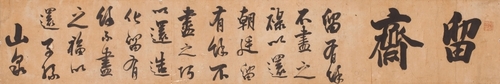 留齋
留有餘
不盡之
祿以還
朝廷留
有餘不
盡之巧
以還造
化留有
餘不盡
之福以
還子孫
山